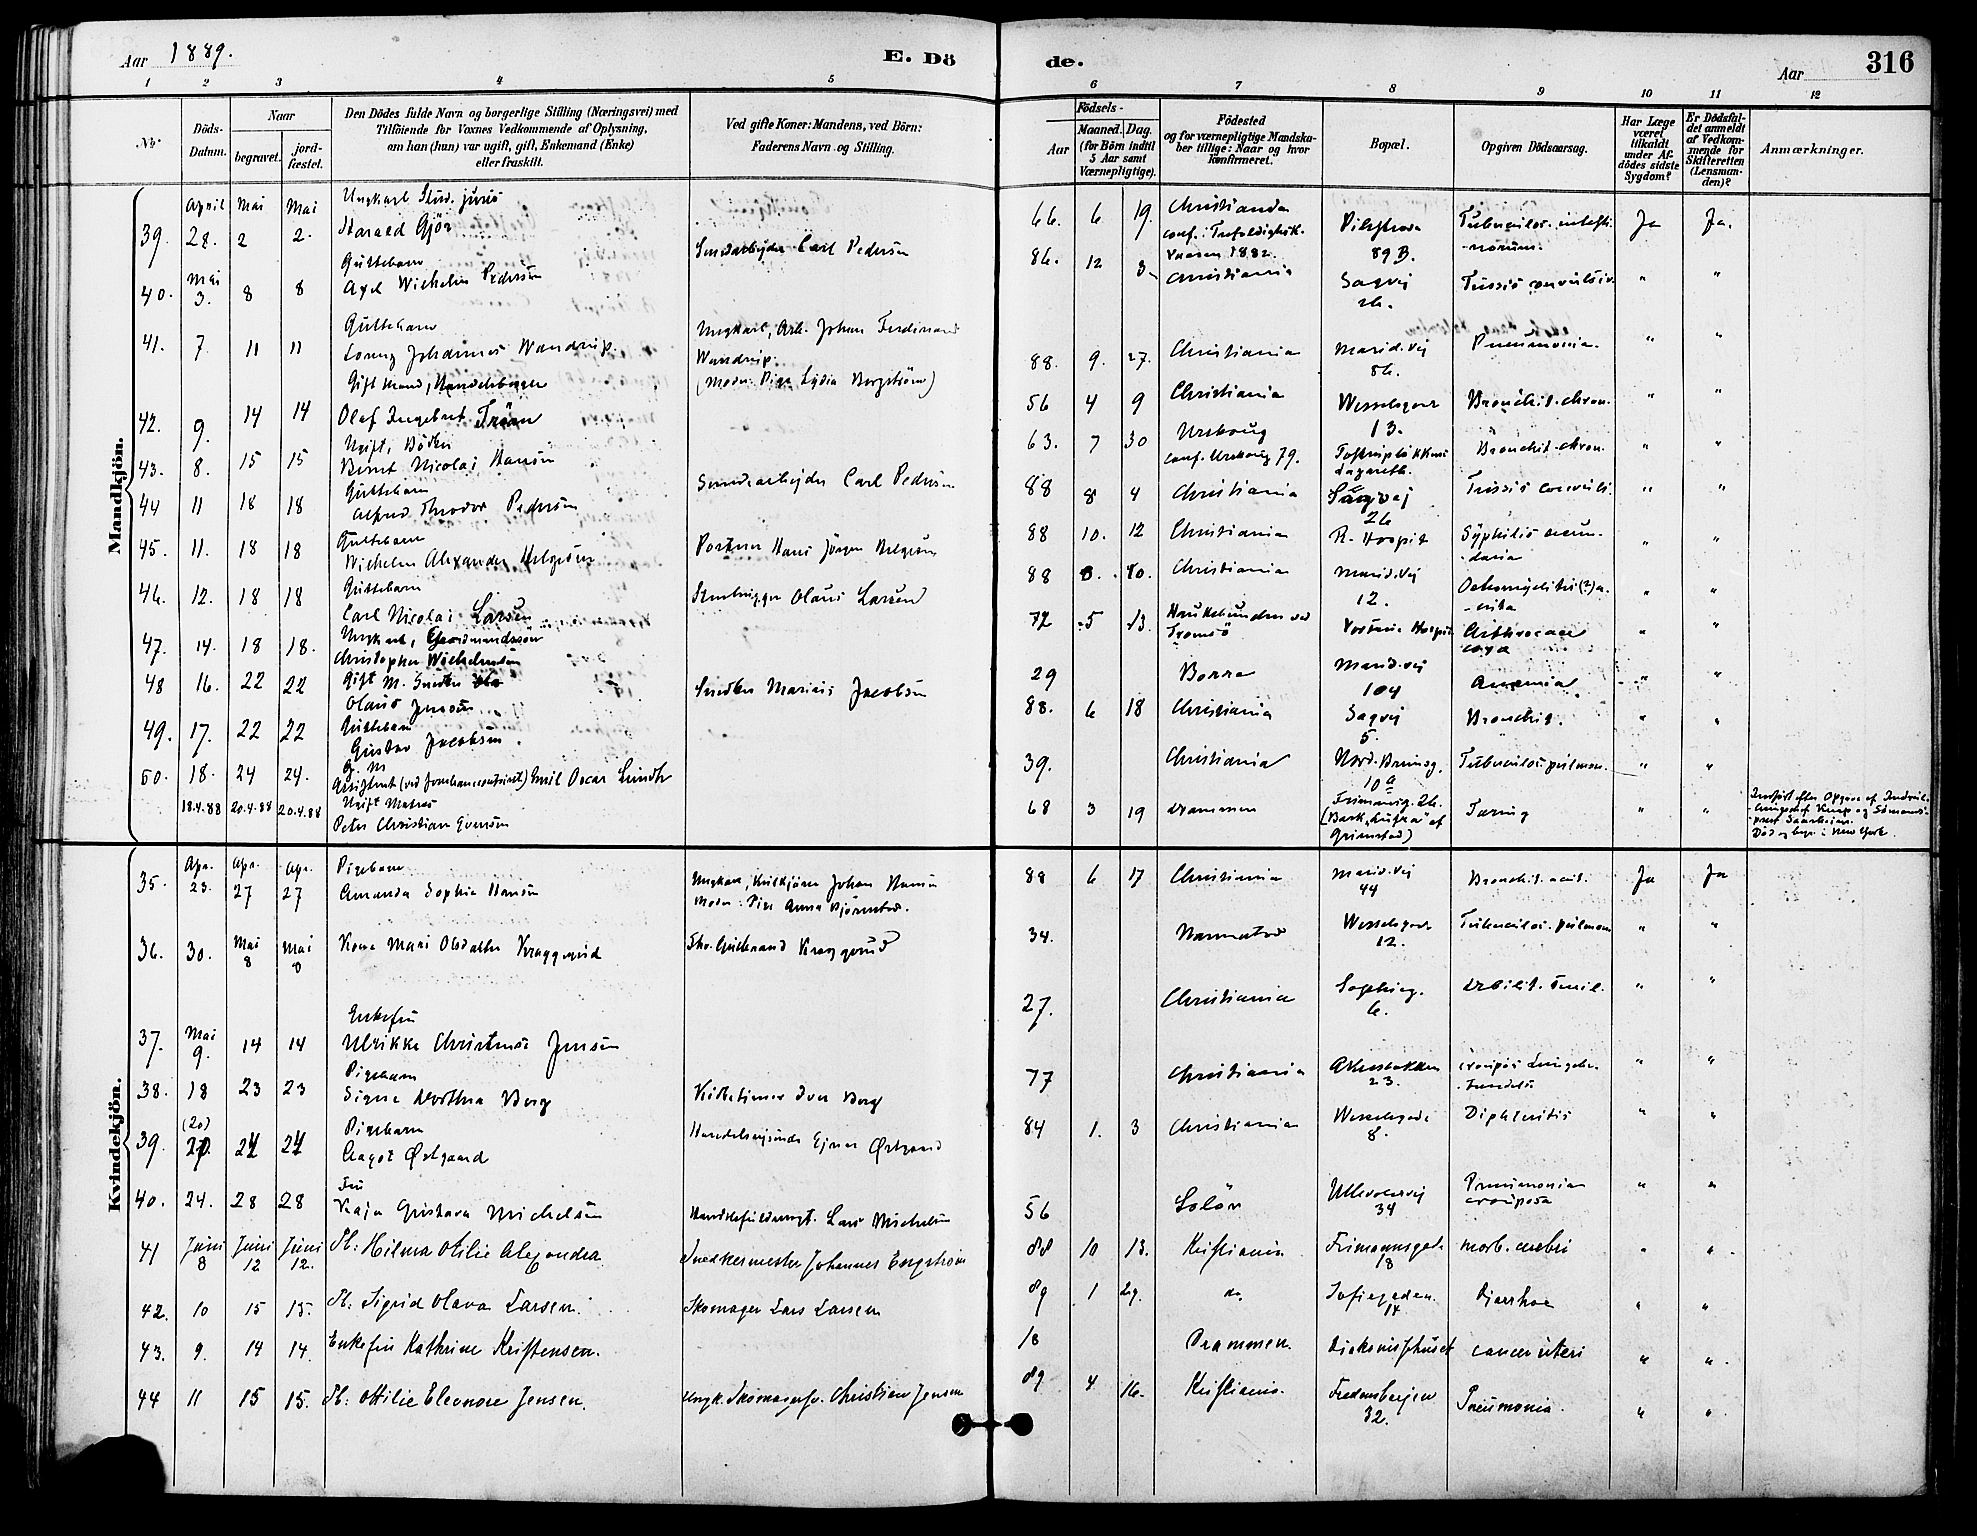 Aar 1889.
E. Dö
de.
Aar
316
1 2 3 4 5
6 7 8 9 10 11 12
No.
Döds-Datum.
Naar
begravet.
jord-fæstet.
Den Dödes fulde Navn og borgerlige Stilling (Næringsvei) med
Tilföiende for Voxnes Vedkommende af Oplysning,
om han (hun) var ugift, gift, Enkemand (Enke)
eller fraskilt.
Ved gifte Koner: Mandens, ved Börn:
Faderens Navn og Stilling.
Födsels-
Aar
Maaned. Dag.
(for Börn indtil
5 Aar samt
Værnepligtige).
Födested
og for værnepligtige Mandska-
ber tillige: Naar og hvor
Konfirmeret.
Bopæl.
Opgiven Dödsaarsag.
Har Læge
været
tilkaldt
under Af-
dödes sidste
Sygdom?
Er Dödsfal-
det anmeldt
af Vedkom-
mende for
Skifteretten
(Lensman-
den)?
Anmærkninger.
Mandkjön.
39. April 28. Mai 2 Mai 2. Ungkarl Stud. juris
Harald Gjör
66. 6 19. Christiania
conf. Trefoldighk.
Vaaren 1882.
Pilestræde
89 B.
Tuberculos. intesti-
-norum. Ja Ja.
40. Mai 3. 8 8 Guttebarn
Axel Wilhelm Pedersen
Carl Pedersen
86. 12 3 Christiania Sagvej
26. Tussis convulsiv. " "
41. 7. 11 11 Guttebarn
Lorenz Johannes Wandrup.
Ungkarl, Arb. Johan Ferdinand
Wandrup.
(Moder: Pige Lydia Bergström)
88. 9. 27. Christiania Marid.vej
86. Pneumonia. " "
42. 9. 14 14 Gift Mand,
Olaf Ingebret
56 4 9 Christiania Wesselsgade
13. Bronchit. chron. " "
43. 8. 15 15 Ugift, Bödker
Bernt Nicolai Hansen
63. 7 30 Urskoug
conf. Urskoug 79.
Bronchit. chron. " "
44 11 18 18 Guttebarn
Alfred Theodor Pedersen
Carl Pedersen
88 8 4 Christiania Sagvej
26 Tussis convuls. " "
45. 11. 18 18 Guttebarn
Wilhelm Alexander Helgesen
Portner Hans Jörgen Helgesen
88 10. 12 Christiania R. Hospit Syphilis secun-
-daria " "
46. 12. 18 18 Guttebarn
Carl Nicolai Larsen
Stenhugger Olaus Larsen
88 10. Christiania Marid.vej
12. " "
47. 14. 18 18. Ungkarl,
Christopher Wilhelmsen
72 5 13. ved
Tromsö Arthrocace
coxa " "
48 16. 22 22 Gift M. Snedker
Olaus Jensen
29 Borre Marid.vej
104 Anæmia " "
49. 17. 22 22 Guttebarn
Gustav Jacobsen
Snedker Marius Jacobsen
88. 6 18 Christiania Sagvej
5. Bronchit. " "
50. 18. 24 24. G. M
Assistent Emil Oscar Lundh
39. Christiania 10a Tuberculos. pulmon. " "
18.4.88 20.4.88 20.4.88 Ugift Matros
Peter Christian Evensen
68 3 19 Drammen Frimansg. 26.
(Bark af
Grimstad) Tæring " "
Död og begr. i New York.
Kvindekjön.
35. Apr. 23. Apr. 27 Apr. 27 Pigebarn
Amanda Sophie Hansen
Ungkarl, Johan Hansen
Moder: Pige Anna Björnstad.
88 6 17 Christiania Marid.vej
44 Bronchit. acut. Ja Ja
36. 30. Mai 8 Mai 8 Kone Mari Olsdatter Kraggerud
Sko. Gulbrand Kraggerud
34. Nannestad Wesselsgade
12. Tuberculos. pulmon " "
37. Mai 9. 14 14 Enkefru
Ulrikke Christense Jensen
27. Christiania 6. Debilit. senil. " "
38. 18 23 23 Pigebarn
Signe Dorthea Berg
Iver Berg
77 Christiania Akersbakken
23. " "
39. (20) 24 24 Pigebarn
Aagot Østgaard
Ejner Østgaard
84 1. 3 Christiania Wesselsgade
8. Diphteritis " "
40. 24. 28 28 Fru
Kaja Gustava Michelsen
Lars Michelsen
56 Solör Ullevoldsvej
34 Pneumonia
crouposa " "
41 Juni 8 Juni 12 Juni 12. Pb: Hilma Otilie Alexandra
Snedkermester Johannes Bergström
88 10 13. Kristiania Frimannsgade
18 morb. cerebri " "
42. 10 15 15. Pb. Sigrid Olava Larsen.
Skomager Lars Larsen
89 1 29. do. Sofiegaden.
14 Djarrhoe " "
43. 9. 14 14. Enkefru Kathrine Kristensen.
18 Drammen. Diakonissehuset cancer uteri " "
44 11 15 15. Pb: Ottilie Eleonore Jensen.
Ungk. Skomagersv. Christian Jensen
89 4 16. Kristiania. Fredensborgvei
32. Pneumonia. " "